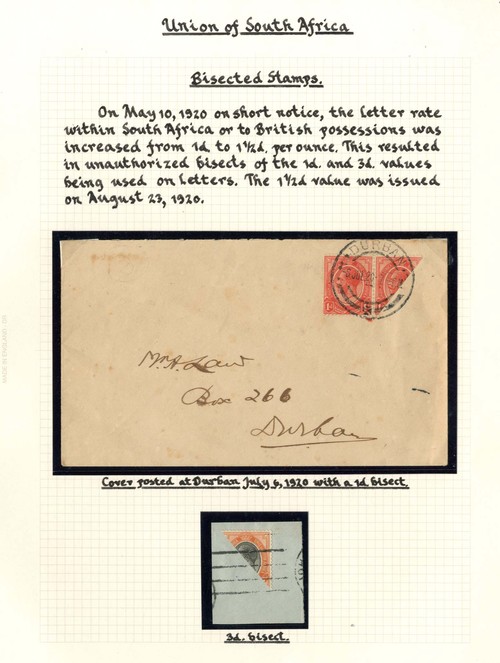 Union of South Africa
Bisected Stamps.
On May 10, 1920 on short notice, the letter rate
within South Africa or to British possessions was
increased from 1d. to 1½d. per ounce. This resulted
in unauthorized bisects of the 1d. and 3d. values
being used on letters. The 1½d value was issued
on August 23, 1920.
DURBAN
Law
Box 266
Durban
Cover posted at Durban July 6, 1920 with a 1d. bisect.
3d. bisect.
MADE IN ENGLAND